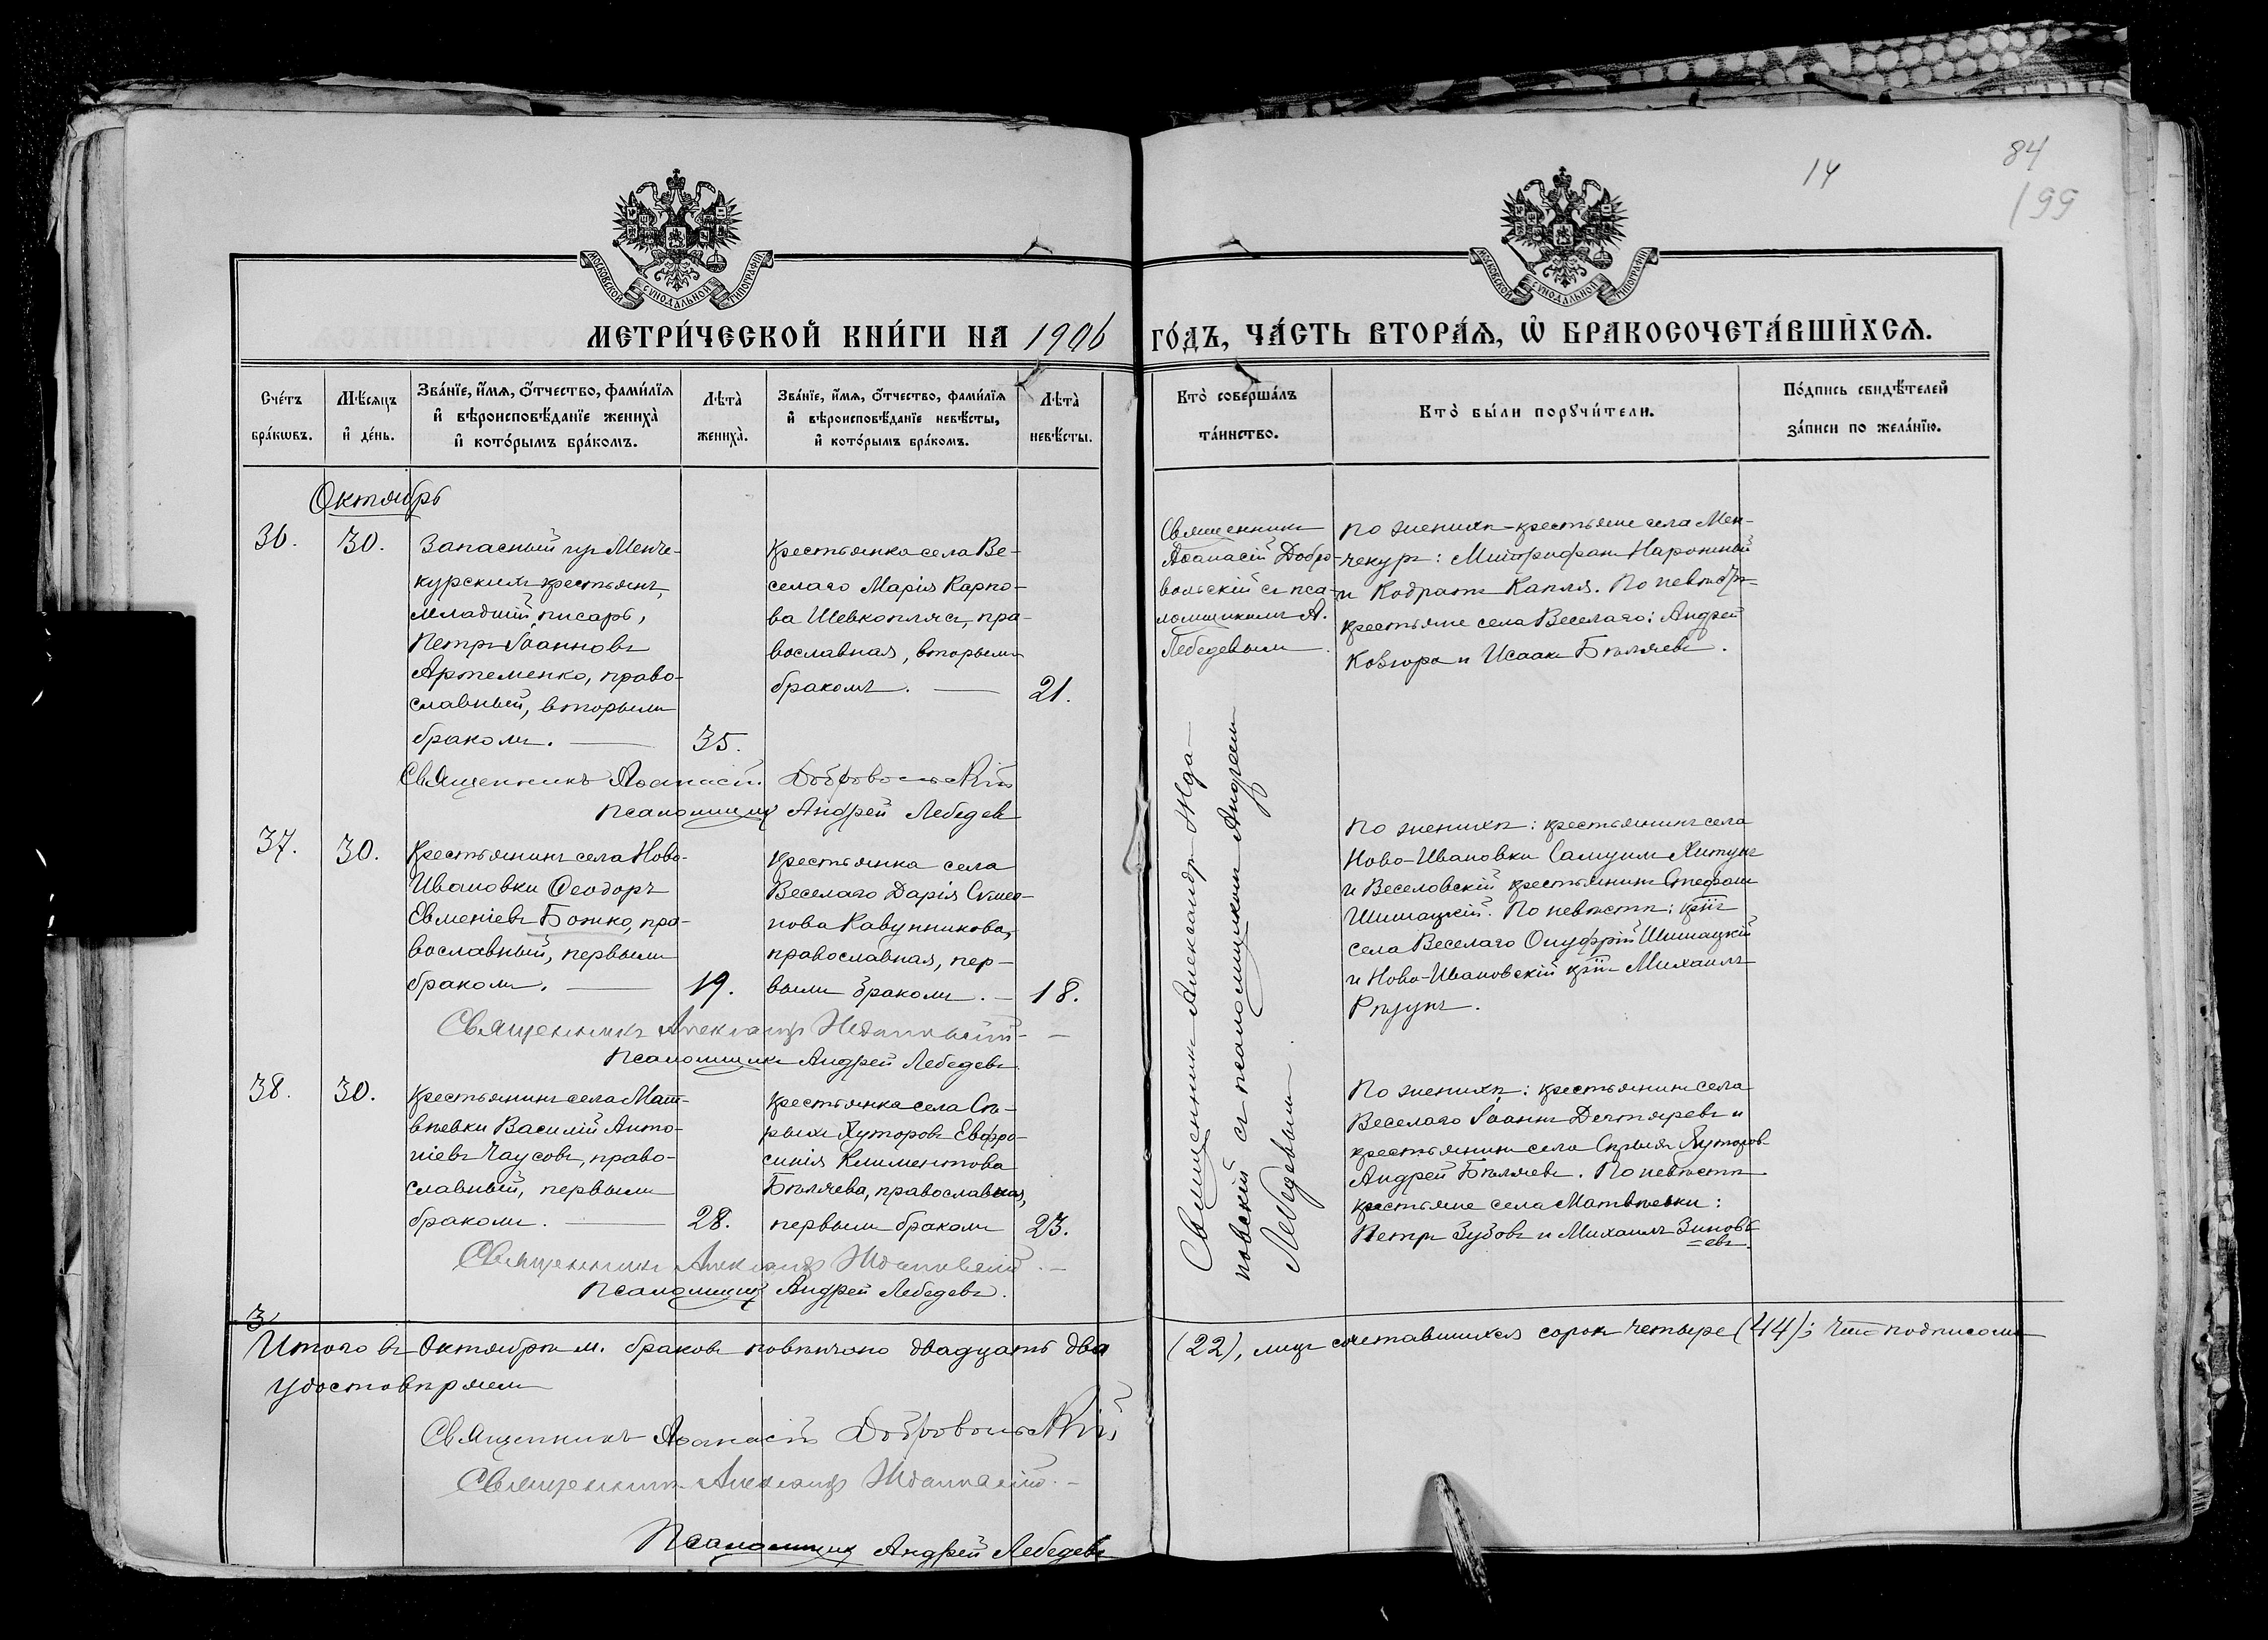 14
84
199
МОСКОВСКОЙ СѴНОДАЛЬНОЙ ТИПОГРАФІИ
МОСКОВСКОЙ СѴНОДАЛЬНОЙ ТИПОГРАФІИ
МЕТРИ́ЧЕСКОЙ КНИ́ГИ НА 1906 ГО́ДЪ, ЧА́СТЬ ВТОРА́Ѧ, Ѡ҆ БРАКОСОЧЕТА́ВШИХСѦ.
Сче́тъ бра́кѡвъ.
Мѣ́сяцъ и҆ де́нь.
Зва́нїе, и҆́мѧ, ѻ҆́тчество, фами́лїѧ
и҆ вѣроисповѣ́данїе жениха̀
и҆ кото́рымъ бра́комъ.
Лѣта̀ жениха̀.
Зва́нїе, и҆́мѧ, ѻ҆́тчество, фами́лїѧ
и҆ вѣроисповѣ́данїе невѣ́сты,
и҆ кото́рымъ бра́комъ.
Лѣта̀ невѣ́сты.
Кто̀ соверша́лъ та́инство.
Кто̀ бы́ли порꙋчи́тели.
По́дпись свидѣ́телей за́писи по жела́нїю.
Октябрь
36.
30.
Запасный изъ Менче-
курскихъ крестьянъ,
младшій писарь,
Петръ Іоанновъ
Артеменко, право-
славный, вторымъ
бракомъ. —
35.
Крестьянка села Ве-
селаго Марія Карпо-
ва Шевкоплясъ, пра-
вославная, вторымъ
бракомъ. —
21.
Священникъ
Аѳанасій Добро-
вольскій съ пса-
ломщикомъ А.
Лебедевымъ.
По женихѣ - крестьяне села Мен-
чекуръ: Митрофанъ Нарожный
и Кодратъ Капля. По невѣстѣ -
крестьяне села Веселаго: Андрей
Ковтора и Исаакъ Бѣляевъ.
Священникъ Аѳанасій Добровольскій
Псаломщикъ Андрей Лебедевъ
37.
30.
Крестьянинъ села Ново-
Ивановки Ѳеодоръ
Евменіевъ Божко, пра-
вославный, первымъ
бракомъ. —
19.
Крестьянка села
Веселаго Дарія Симео-
нова Кавунникова,
православная, пер-
вымъ бракомъ. —
18.
Священникъ Александръ Жда-
новскій съ псаломщикомъ Андреемъ
Лебедевымъ.
По женихѣ: крестьянинъ села
Ново-Ивановки Самуилъ Хитунъ
и Веселовскій крестьянинъ Стефанъ
Шишацкій. По невѣстѣ: кр-нъ
села Веселаго Онуфрій Шишацкій
и Ново-Ивановскій кр-нъ Михаилъ
Рѣзунъ.
Священникъ Александръ Ждановскій. —
Псаломщикъ Андрей Лебедевъ.
38.
30.
Крестьянинъ села Мат-
вѣевки Василій Анто-
ніевъ Чаусовъ, право-
славный, первымъ
бракомъ. —
28.
Крестьянка села Сѣ-
рыхъ Хуторовъ Евфро-
синія Климентова
Бѣляева, православная,
первымъ бракомъ
23.
По женихѣ: крестьянинъ села
Веселаго Іоаннъ Дегтяревъ и
крестьянинъ села Сѣрыхъ Хуторовъ
Андрей Бѣляевъ. По невѣстѣ
крестьяне села Матвѣевки:
Петръ Зубовъ и Михаилъ Зиновь
=евъ.
Священникъ Александръ Ждановскій. —
Псаломщикъ Андрей Лебедевъ.
3
Итого въ Октябрѣ м. браковъ повѣнчано двадцать два (22), лицъ сочетавшихся сорокъ четыре (44); что подписомъ
удостовѣряемъ
Священникъ Аѳанасій Добровольскій
Священникъ Александръ Ждановскій. —
Псаломщикъ Андрей Лебедевъ